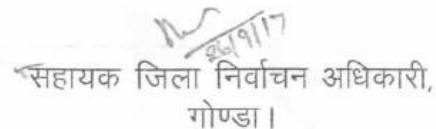 26/9/17
सहायक जिला निर्वाचन अधिकारी,
गोण्डा।